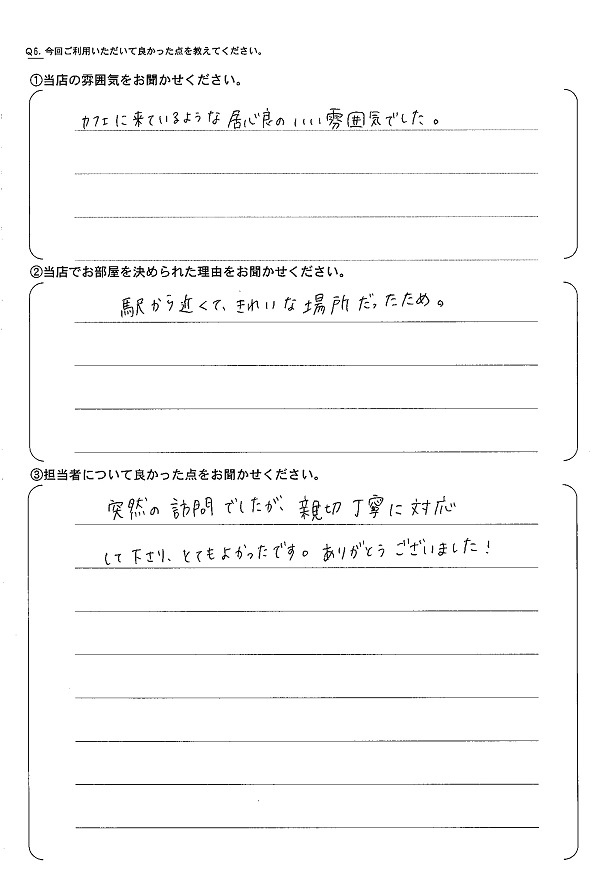 Q6. 今回ご利用いただいて良かった点を教えてください。
①当店の雰囲気をお聞かせください。
カフェに来ているような居心良のいい雰囲気でした。
②当店でお部屋を決められた理由をお聞かせください。
駅から近くて、きれいな場所だったため。
③担当者について良かった点をお聞かせください。
突然の訪問でしたが、親切丁寧に対応
して下さり、とてもよかったです。ありがとうございました！